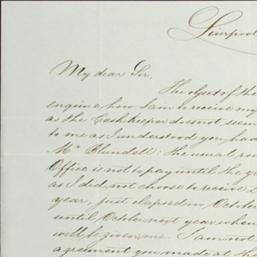 Liverpool
My dear Sir,
The object of the
engine, how I am to receive my
as the Cashkeeper does not seem
to me as I understood you had
Mr Blundell: the usual
Office is not to pay until the
as I did not choose to receive
year, just elapsed in October
until October next year when
will be given me. I am not
agreement you made at the